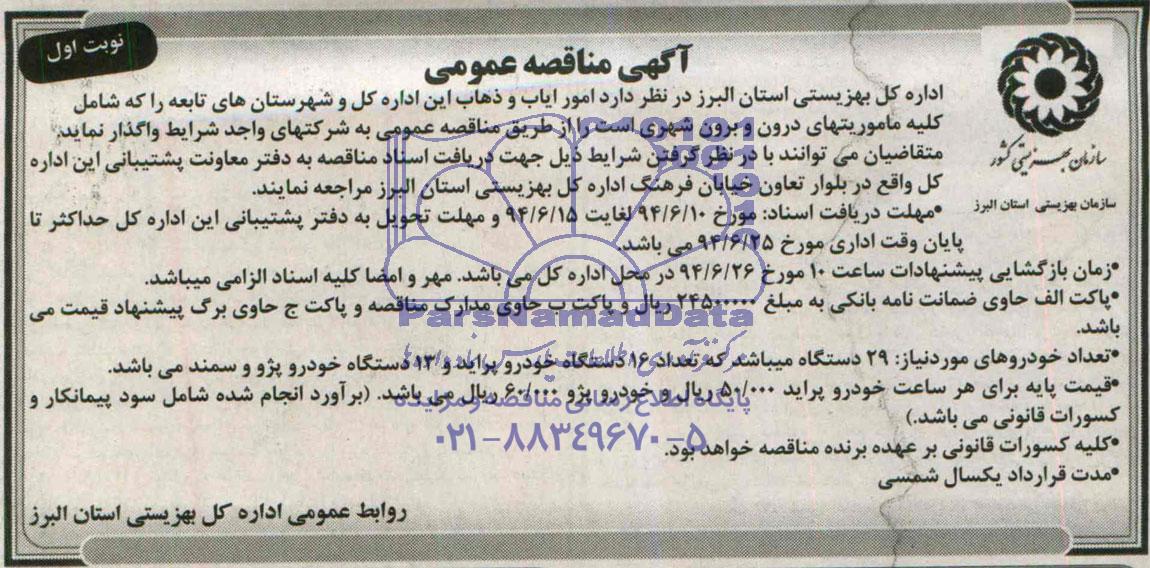 نوبت اول
آگهی مناقصه عمومی
سازمان بهزیستی کشور
سازمان بهزیستی استان البرز
اداره کل بهزیستی استان البرز در نظر دارد امور ایاب و ذهاب این اداره کل و شهرستان های تابعه را که شامل
کلیه ماموریتهای درون و برون شهری است را از طریق مناقصه عمومی به شرکتهای واجد شرایط واگذار نماید
متقاضیان می توانند با در نظر گرفتن شرایط ذیل جهت دریافت اسناد مناقصه به دفتر معاونت پشتیبانی این اداره
کل واقع در بلوار تعاون خیابان فرهنگ اداره کل بهزیستی استان البرز مراجعه نمایند.
•مهلت دریافت اسناد: مورخ ۹۴/۶/۱۰ لغایت ۹۴/۶/۱۵ و مهلت تحویل به دفتر پشتیبانی این اداره کل حداکثر تا
پایان وقت اداری مورخ ۹۴/۶/۲۵ می باشد.
•زمان بازگشایی پیشنهادات ساعت ۱۰ مورخ ۹۴/۶/۲۶ در محل اداره کل می باشد. مهر و امضا کلیه اسناد الزامی میباشد.
•پاکت الف حاوی ضمانت نامه بانکی به مبلغ ۲۴۵۰۰۰۰۰ ریال و پاکت ب حاوی مدارک مناقصه و پاکت ج حاوی برگ پیشنهاد قیمت می
باشد.
•تعداد خودروهای موردنیاز: ۲۹ دستگاه میباشد که تعداد ۱۶ دستگاه خودرو پراید و ۱۳ دستگاه خودرو پژو و سمند می باشد.
•قیمت پایه برای هر ساعت خودرو پراید ۵۰/۰۰۰ ریال و خودرو پژو ۶۰/۰۰۰ ریال می باشد. (برآورد انجام شده شامل سود پیمانکار و
کسورات قانونی می باشد.)
•کلیه کسورات قانونی بر عهده برنده مناقصه خواهد بود.
•مدت قرارداد یکسال شمسی
روابط عمومی اداره کل بهزیستی استان البرز
ParsNamadData
پایگاه اطلاع رسانی مناقصه و مزایده
۰۲۱-۸۸۳۴۹۶۷۰-۵